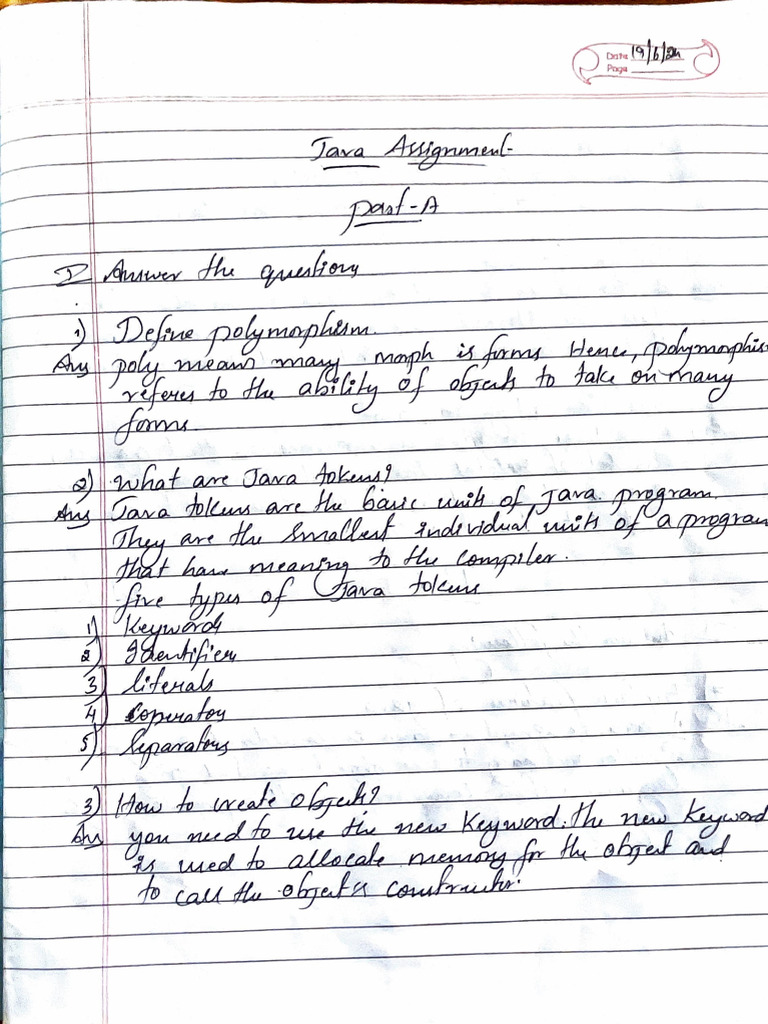 Date 19/6/24
Page
Java Assignment
part-A
I Answer the questions
1) Define polymorphism.
Ans poly means many. morph is forms Hence, polymorphis
referes to the ability of objects to take on many
forms.
2) What are Java tokens?
Ans Java tokens are the basic units of Java program.
They are the smallest individual units of a program
that have meaning to the compiler.
five types of Java tokens
1) Keywords
2) Identifiers
3) literals
4) operators
5) Separators
3) How to create object?
Ans you need to use the new keyword. the new keyword
is used to allocate memory for the object and
to call the object's constructor.